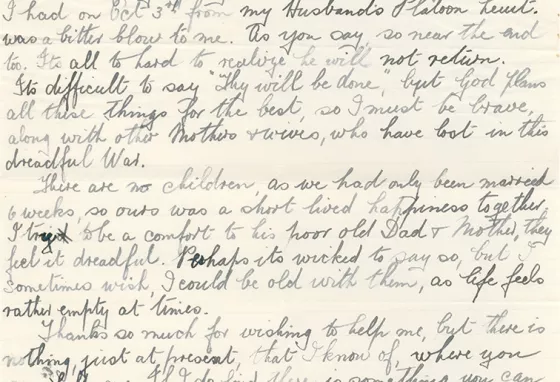 I had on Oct 3rd from my Husband's Platoon Lieut.
was a bitter blow to me. As you say, so near the end
too. Its all to hard to realize he will not return.
Its difficult to say "Thy will be done", but God plans
all these things for the best, so I must be brave,
along with other Mothers & wives, who have lost in this
dreadful War.
There are no children, as we had only been married
6 weeks, so ours was a short lived happiness together,
I try to be a comfort to his poor old Dad & Mother, they
feel it dreadful. Perhaps its wicked to say so, but I
sometimes wish, I could be old with them, as life feels
rather empty at times.
Thanks so much for wishing to help me, but there is
nothing, just at present, that I know of, where you
If I do find there is something you can